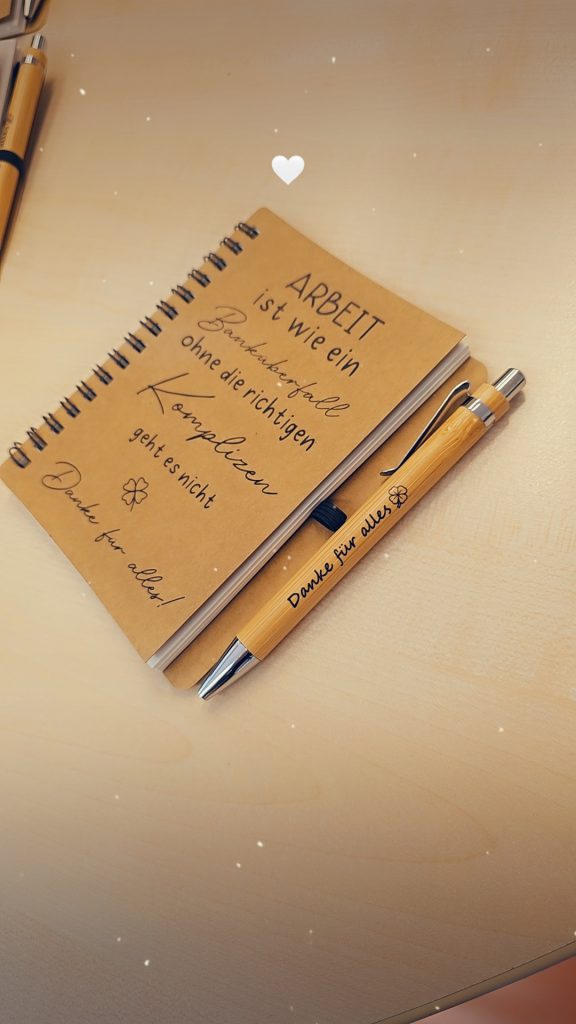 ARBEIT
ist wie ein
Banküberfall
ohne die richtigen
Komplizen
geht es nicht
Danke für alles!
Danke für alles